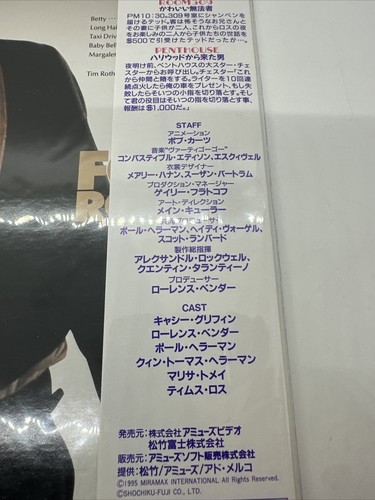 Betty
Long Ha
Taxi Driv
Baby Bel
Margale
Tim Roth
F
R
ROOM309
かわいい無法者
PM10:30●309号室にシャンペンを
届けるテッド。客は怖そうなお兄さんと
その妻に子供が二人。これからロスの夜
をお楽しみの二人から子供たちの世話を
$500で引受けたテッドだったが…。
PENTHOUSE
ハリウッドから来た男
夜明け前、ペントハウスの大スター・チェ
スターからお呼び出し。チェスター「これ
から仲間と賭をする。ライターを10回連
続点火したら俺の車をプレゼント。もし失
敗したらそいつの小指を切り落とす。そし
て君の役目はそいつの指を切り落とす事、
報酬は$1,000だ。」
STAFF
アニメーション
ボブ・カーツ
音楽“ヴァーティゴーゴー”
コンバスティブル・エディソン、エスクィヴェル
衣裳デザイナー
メアリー・ハナン、スーザン・バートラム
プロダクション・マネージャー
ゲイリー・フラトコフ
アート・ディレクション
メイン・キューラー
プロデューサー
ポール・ヘラーマン、ヘイディ・ヴォーゲル、
スコット・ランバード
製作総指揮
アレクサンドル・ロックウェル、
クエンティン・タランティーノ
プロデューサー
ローレンス・ベンダー
CAST
キャシー・グリフィン
ローレンス・ベンダー
ポール・ヘラーマン
クィン・トーマス・ヘラーマン
マリサ・トメイ
ティムス・ロス
発売元：株式会社アミューズビデオ
松竹富士株式会社
販売元：アミューズソフト販売株式会社
提供：松竹/アミューズ/アド・メルコ
©1995 MIRAMAX INTERNATIONAL All Rights Reserved.
©SHOCHIKU-FUJI CO., LTD.